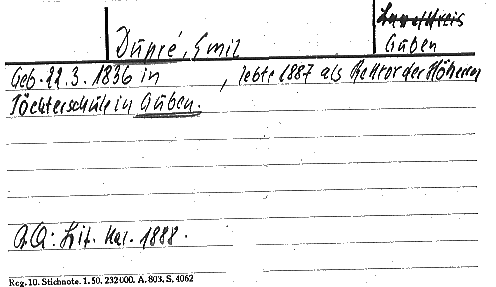 Landkreis
Dupré, Emil
Guben
Geb. 22. 3. 1836 in , lebte 1887 als Rektor der Höheren
Töchterschule in Guben.
Lit. Kal. 1888.
Rcg. 10. Stichnote. 1. 50. 232000. A. 803. S. 4062